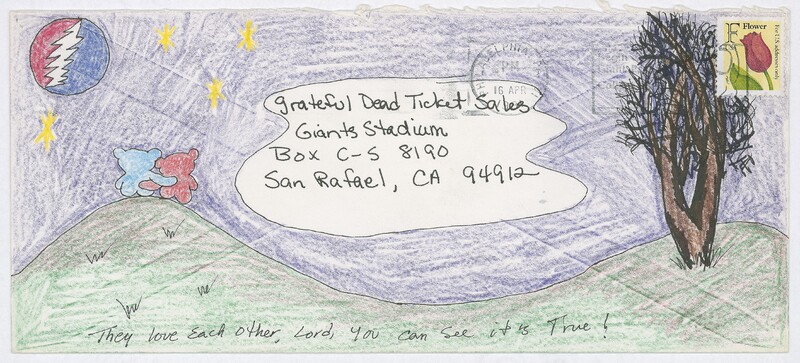 Grateful Dead Ticket Sales
Giants Stadium
Box C-S 8190
San Rafael, CA 94912
F Flower
For U.S. addresses only
16 APR
They love Each Other, Lord, you can see it is True!